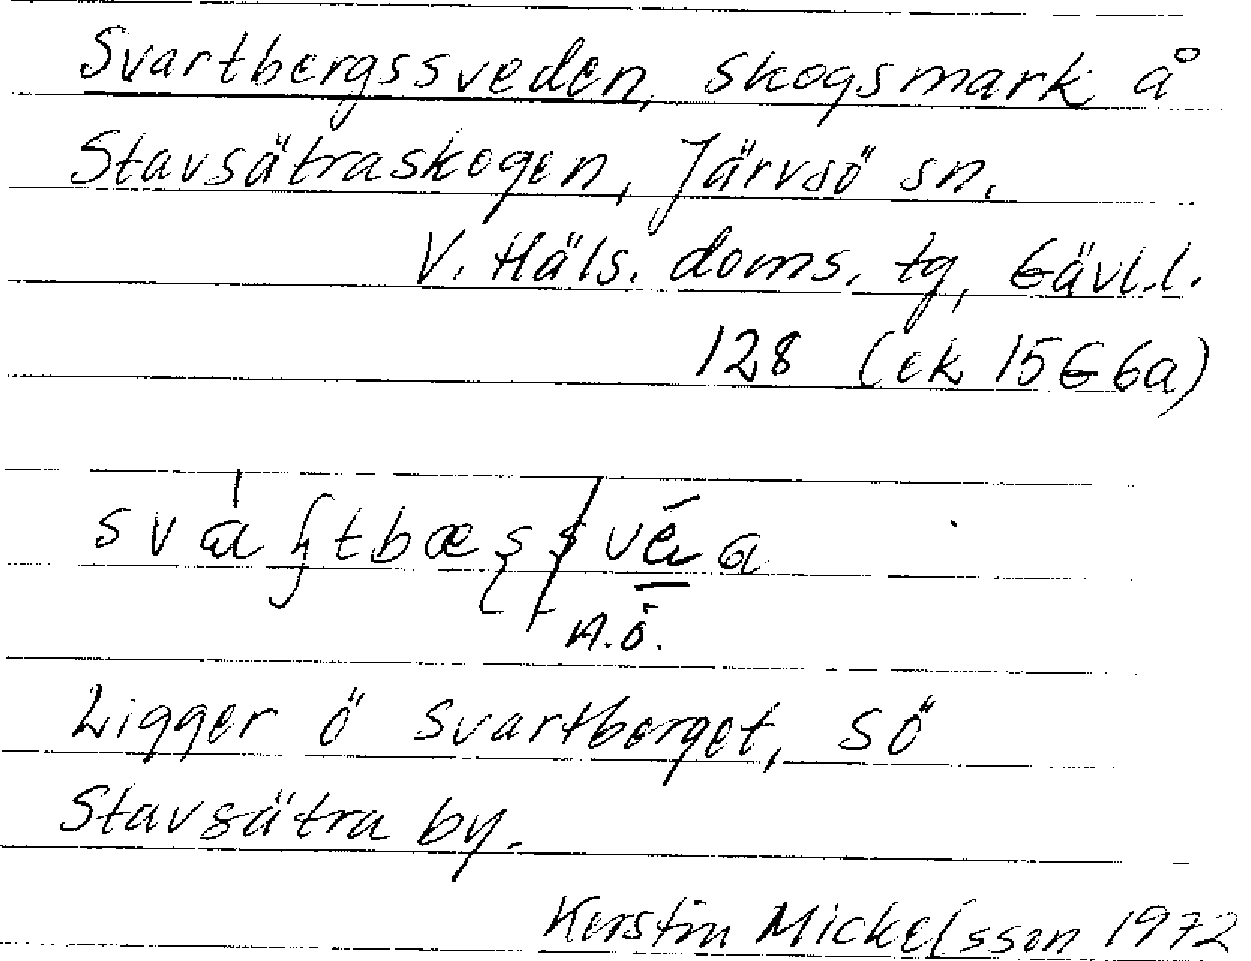 Svartbergssveden, skogsmark å
Stavsätraskogen, Järvsö sn.
V. Häls. doms. tg, Gävl.l.
128 (ek 15G6a)
n.ö.
Ligger ö Svartberget, sö
Stavsätra by.
Kerstin Mickelsson 1972